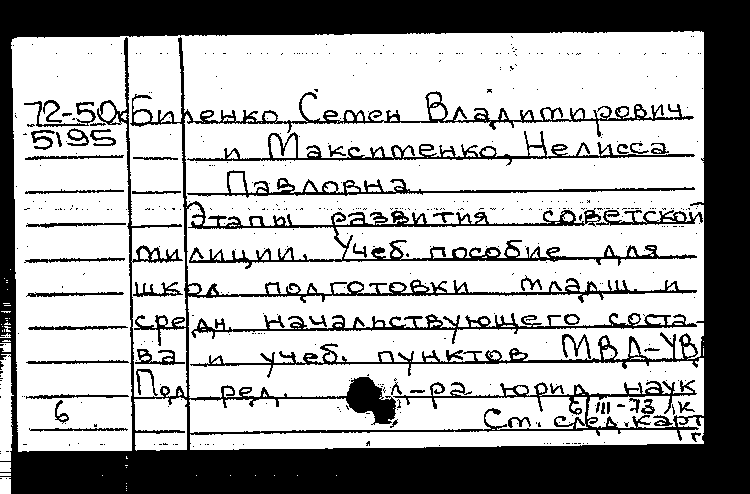 72-50к Биленко, Семен Владимирович
5195 и Максименко, Нелисса
Павловна.
Этапы развития советской
милиции. Учеб. пособие для
школ подготовки младш. и
средн. начальствующего соста-
ва и учеб. пунктов МВД-УВД
Под ред. д-ра юрид. наук
6
Ст. след. карт